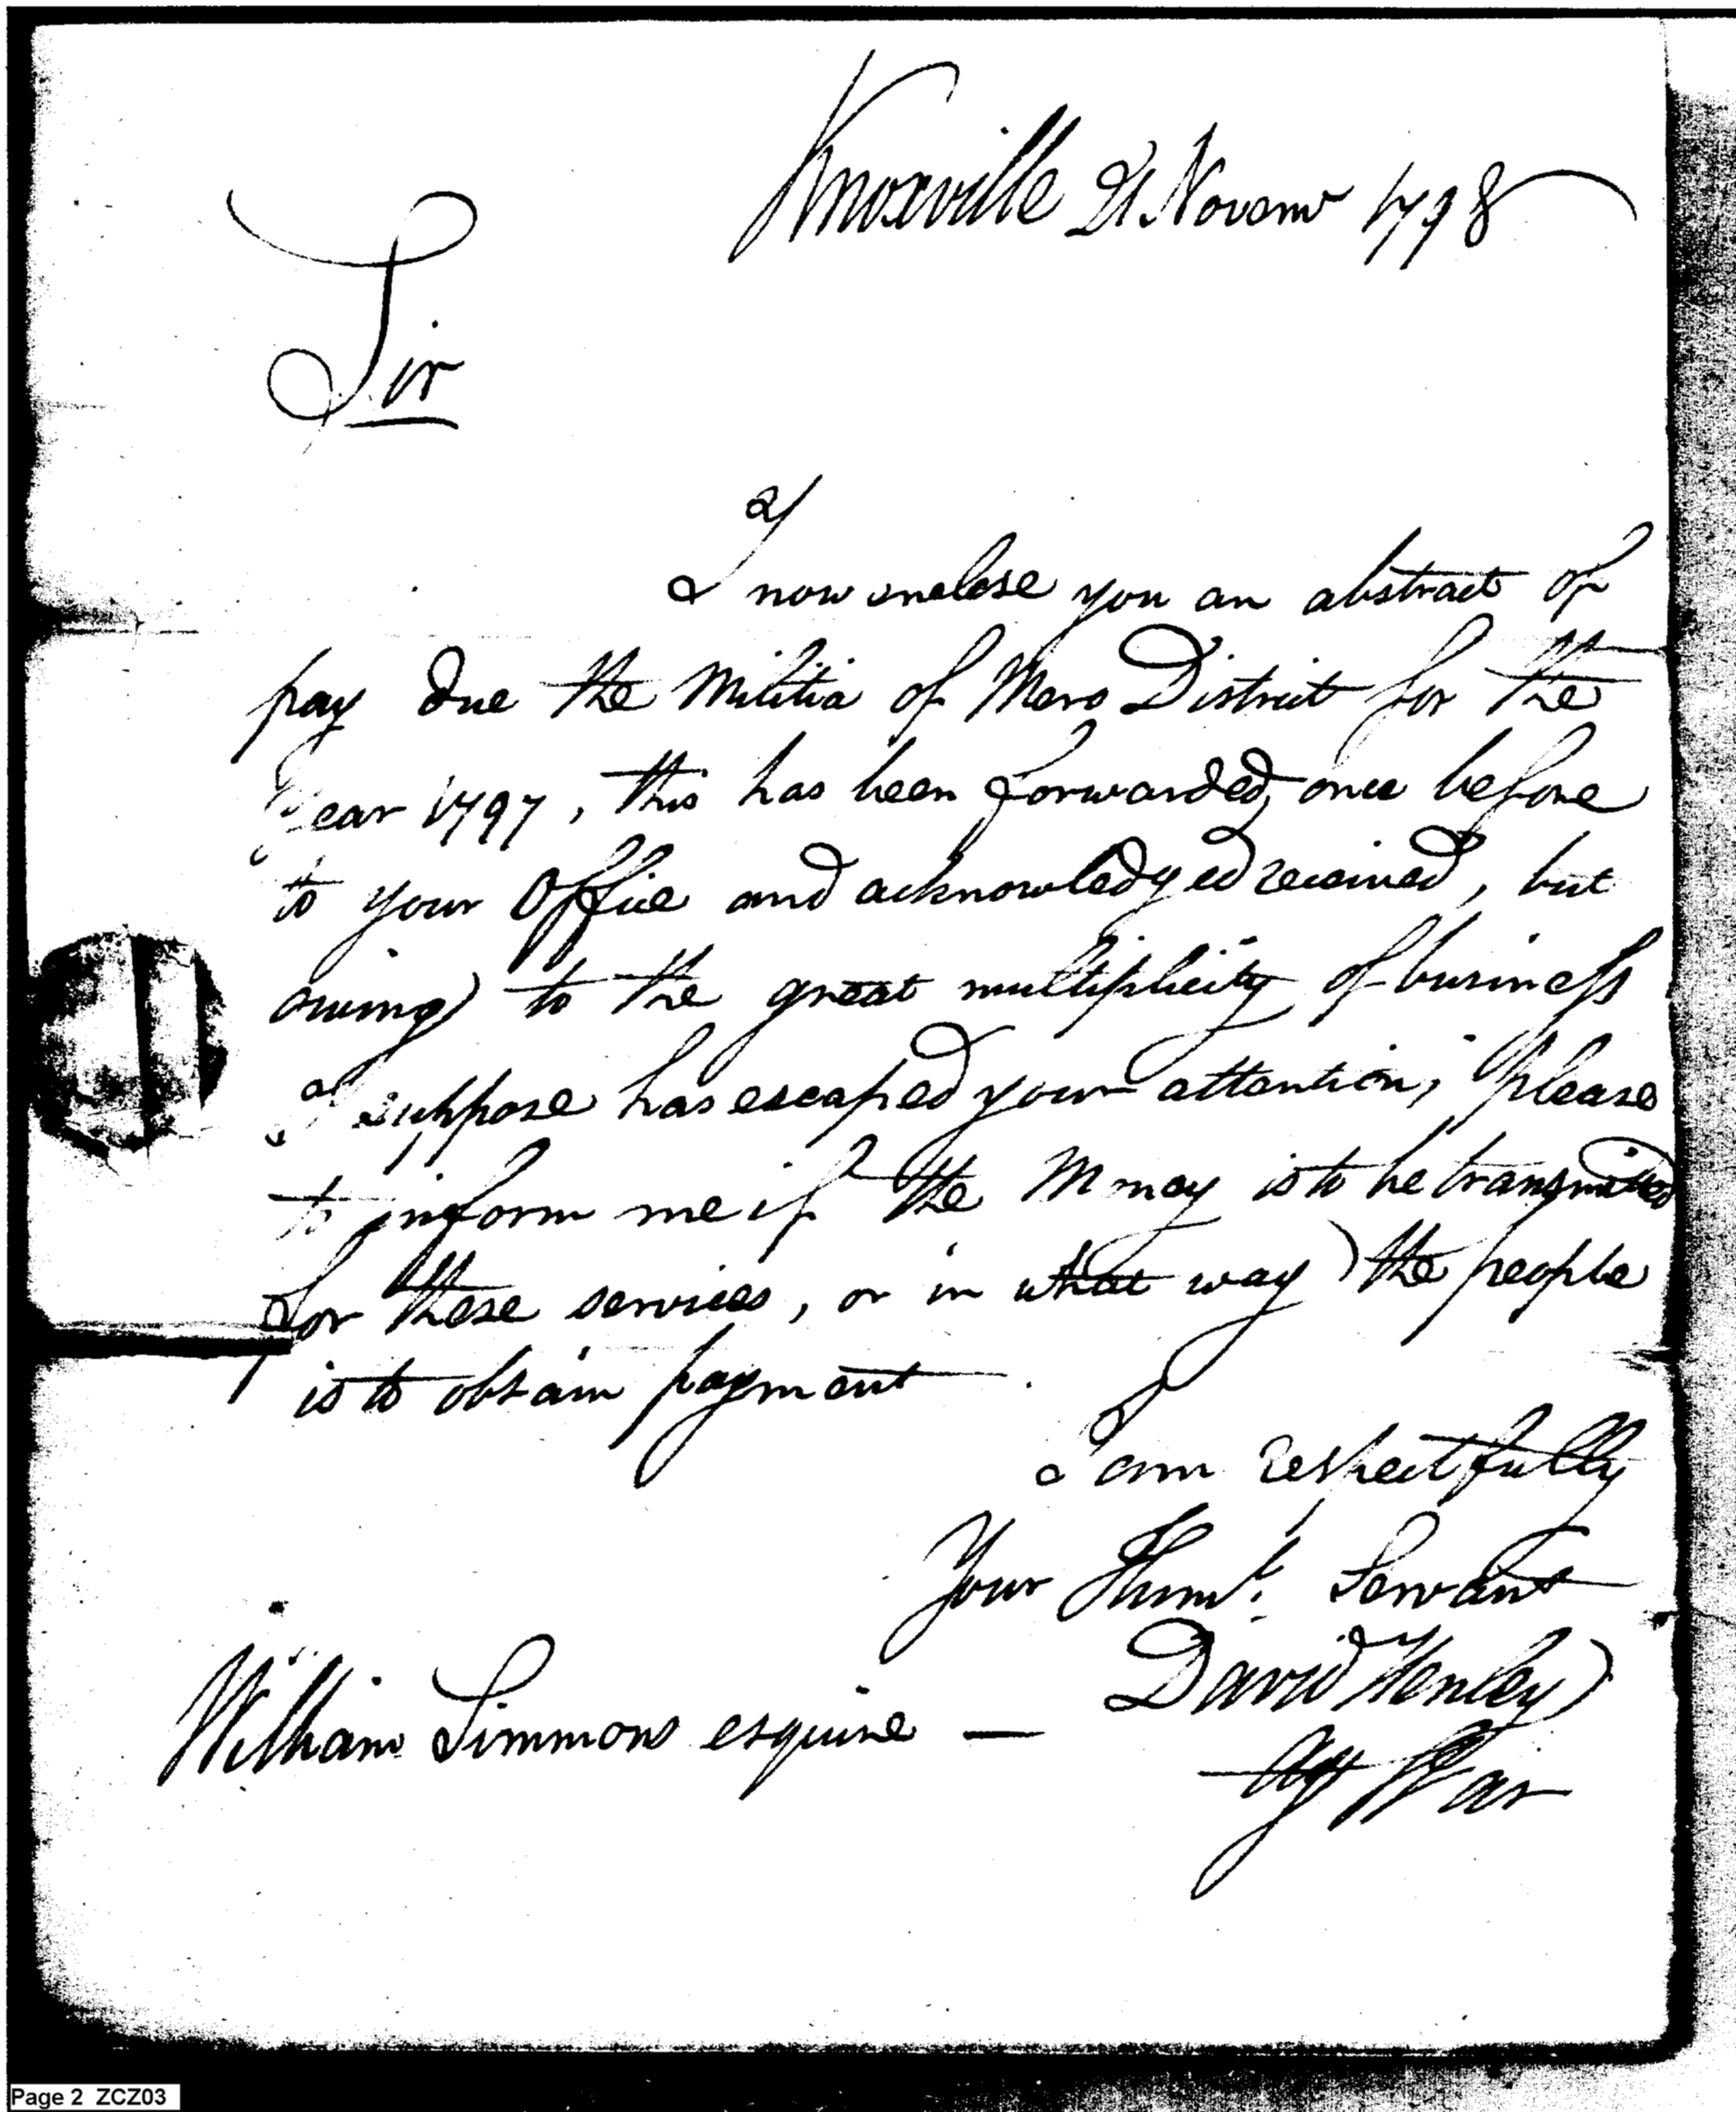 Knoxville 21 Novemr 1798
Sir
I now enclose you an abstract of
pay due the Militia of Mero District for the
Year 1797, this has been forwarded once before
to your Office and acknowledged received, but
owing to the great multiplicity of business
I suppose has escaped your attention, please
to inform me if the Money is to be transmitted
for these services, or in what way the people
is to obtain payment.
I am respectfully
Your Humbl. Servant
David Henley
William Simmons esquire —
Agt War
Page 2 ZCZ03